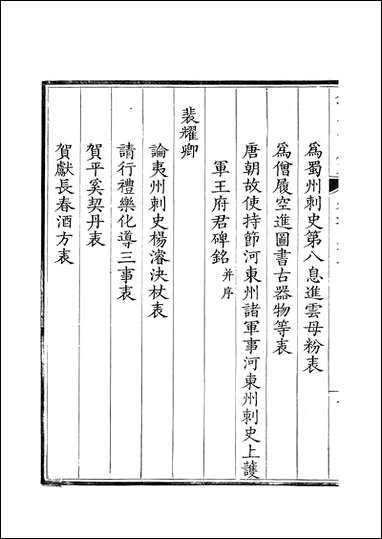 爲蜀州刺史第八息進雲母粉表
爲僧履空進圖書古器物等表
唐朝故使持節河東州諸軍事河東州刺史上護
軍王府君碑銘并序
裴耀卿
論夷州刺史楊濬決杖表
請行禮樂化導三事表
賀平奚契丹表
賀獻長春酒方表